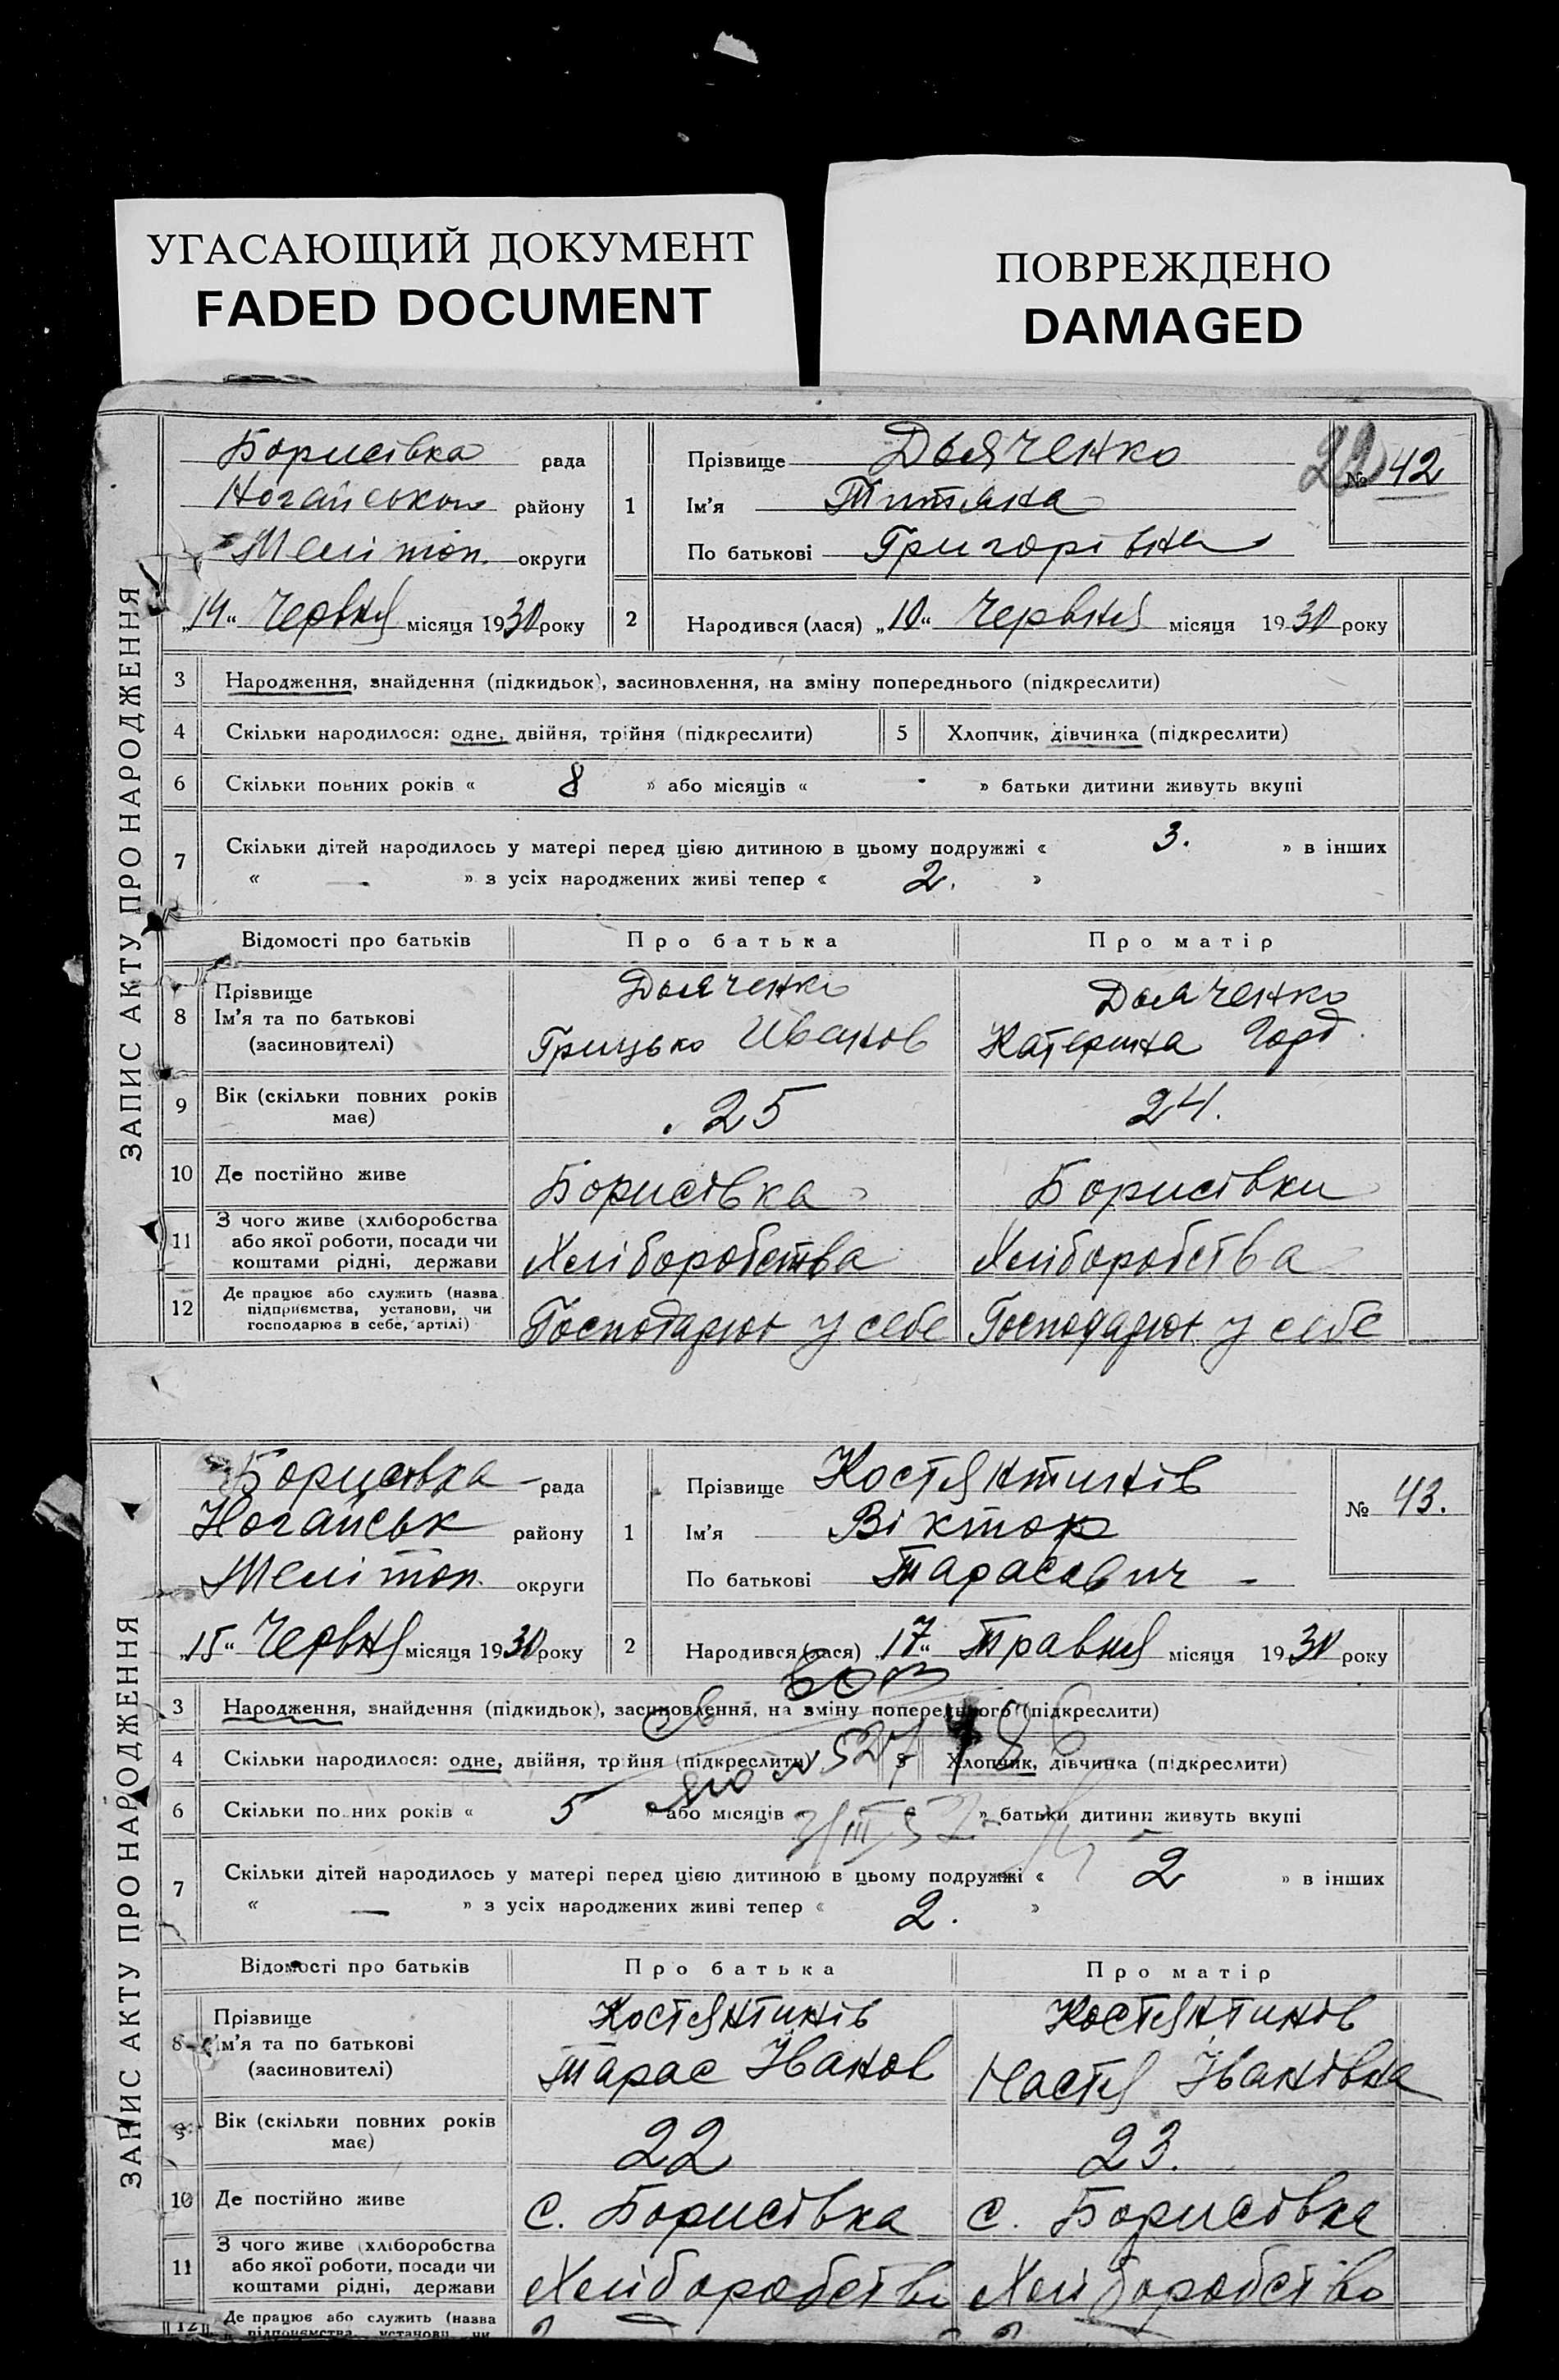 УГАСАЮЩИЙ ДОКУМЕНТ
FADED DOCUMENT
ПОВРЕЖДЕНО
DAMAGED
ЗАПИС АКТУ ПРО НАРОДЖЕННЯ
Борисівка рада
Ногайськ району
Меліт��п. округи
„14“ Червня місяця 1930 року
1
Прізвище Дьяченко
Ім'я Титяна
По батькові Григорівна
22
№ 42
2
Народився (лася) „10“ Червня місяця 1930 року
3 Народження, знайдення (підкидьок), засиновлення, на зміну попереднього (підкреслити)
4 Скільки народилося: одне, двійня, трійня (підкреслити) 5 Хлопчик, дівчинка (підкреслити)
6 Скільки повних років « 8 » або місяців « - » батьки дитини живуть вкупі
7 Скільки дітей народилось у матері перед цією дитиною в цьому подружжі « 3. » в інших
« — » з усіх народжених живі тепер « 2. »
Відомості про батьків Про батька Про матір
8 Прізвище
Ім'я та по батькові
(засиновителі)
Дьяченко
Грицько Иванов
Дьяченко
Катерина Горд.
9 Вік (скільки повних років
має)
25
24.
10 Де постійно живе Борисівка Борисівки
11 З чого живе (хліборобства
або якої роботи, посади чи
коштами рідні, держави
Хліборобства Хліборобства
12 Де працює або служить (назва
підприємства, установи, чи
господарює в себе, артілі)
Господарют у себе Господарют у себе
ЗАПИС АКТУ ПРО НАРОДЖЕННЯ
Борисовка рада
Ногайськ району
Мелітоп. округи
„15“ Червня місяця 1930 року
1
Прізвище Костянтинів
Ім'я Віктор
По батькові Тарасович -
№ 43.
2
Народився (лася) „17“ Травня місяця 1930 року
3 Народження, знайдення (підкидьок), засиновлення, на зміну попереднього (підкреслити)
4 Скільки народилося: одне, двійня, трійня (підкреслити) 5 Хлопчик, дівчинка (підкреслити)
6 Скільки повних років « 5 » або місяців « » батьки дитини живуть вкупі
7 Скільки дітей народилось у матері перед цією дитиною в цьому подружжі « 2 » в інших
« — » з усіх народжених живі тепер « 2. »
Відомості про батьків Про батька Про матір
8 Прізвище
Ім'я та по батькові
(засиновителі)
Костянтинів
Тарас Іванов
Костянтинів
Настя Іванівна
9 Вік (скільки повних років
має)
22
23.
10 Де постійно живе с. Борисівка с. Борисовка
11 З чого живе (хліборобства
або якої роботи, посади чи
коштами рідні, держави
Хліборобство Хліборобство
12 Де працює або служить (назва
підприємства, установи, чи